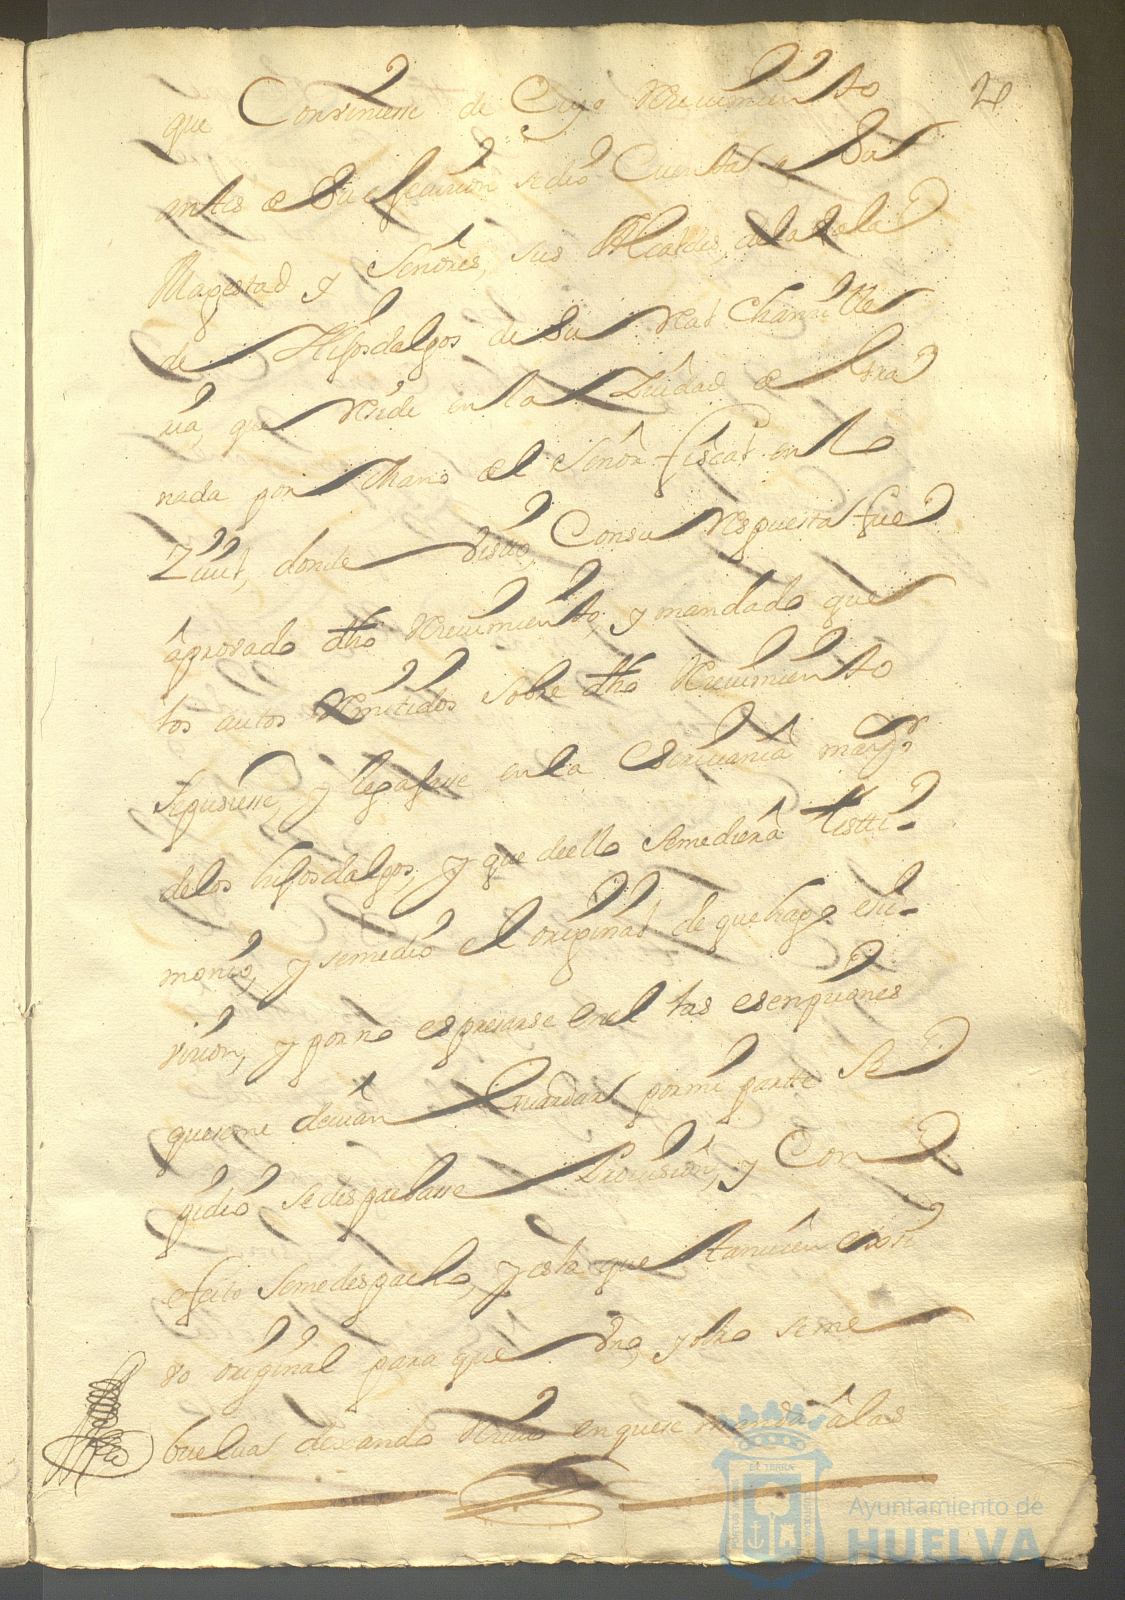 2
que Conviniesse de Cuyo Recivimiento
antes de Su esecucion se dio Cuenta a Su
Magestad y Señores, sus Alcaldes, de la Sala
de Hijosdalgos de Su Real Chancille
ria, que Reside en la Ziudad de Gra
nada por Mano del Señor fiscal en lo
Zivil, donde Visto, Con su Respuesta fue
âprovado dho Recivimiento, y mandado que
los autos Remitidos sobre dho Recivimiento
se pusiesse, y legasse en la Escrivania mayor
de los hijosdalgos, y que de ello se me diera testi-
monio, y se me dio el original de que hago esiv-
vicion, y por no espresarse en el las esempciones
que se me devian Guardar por mi parte Se
pidio se despachasse Provision, y Con
efeito Se me despacho, y es la que tamvien
vo original para que Uno, y otro se me
buelva dexando en que se manda â las
Ayuntamiento de
HUELVA